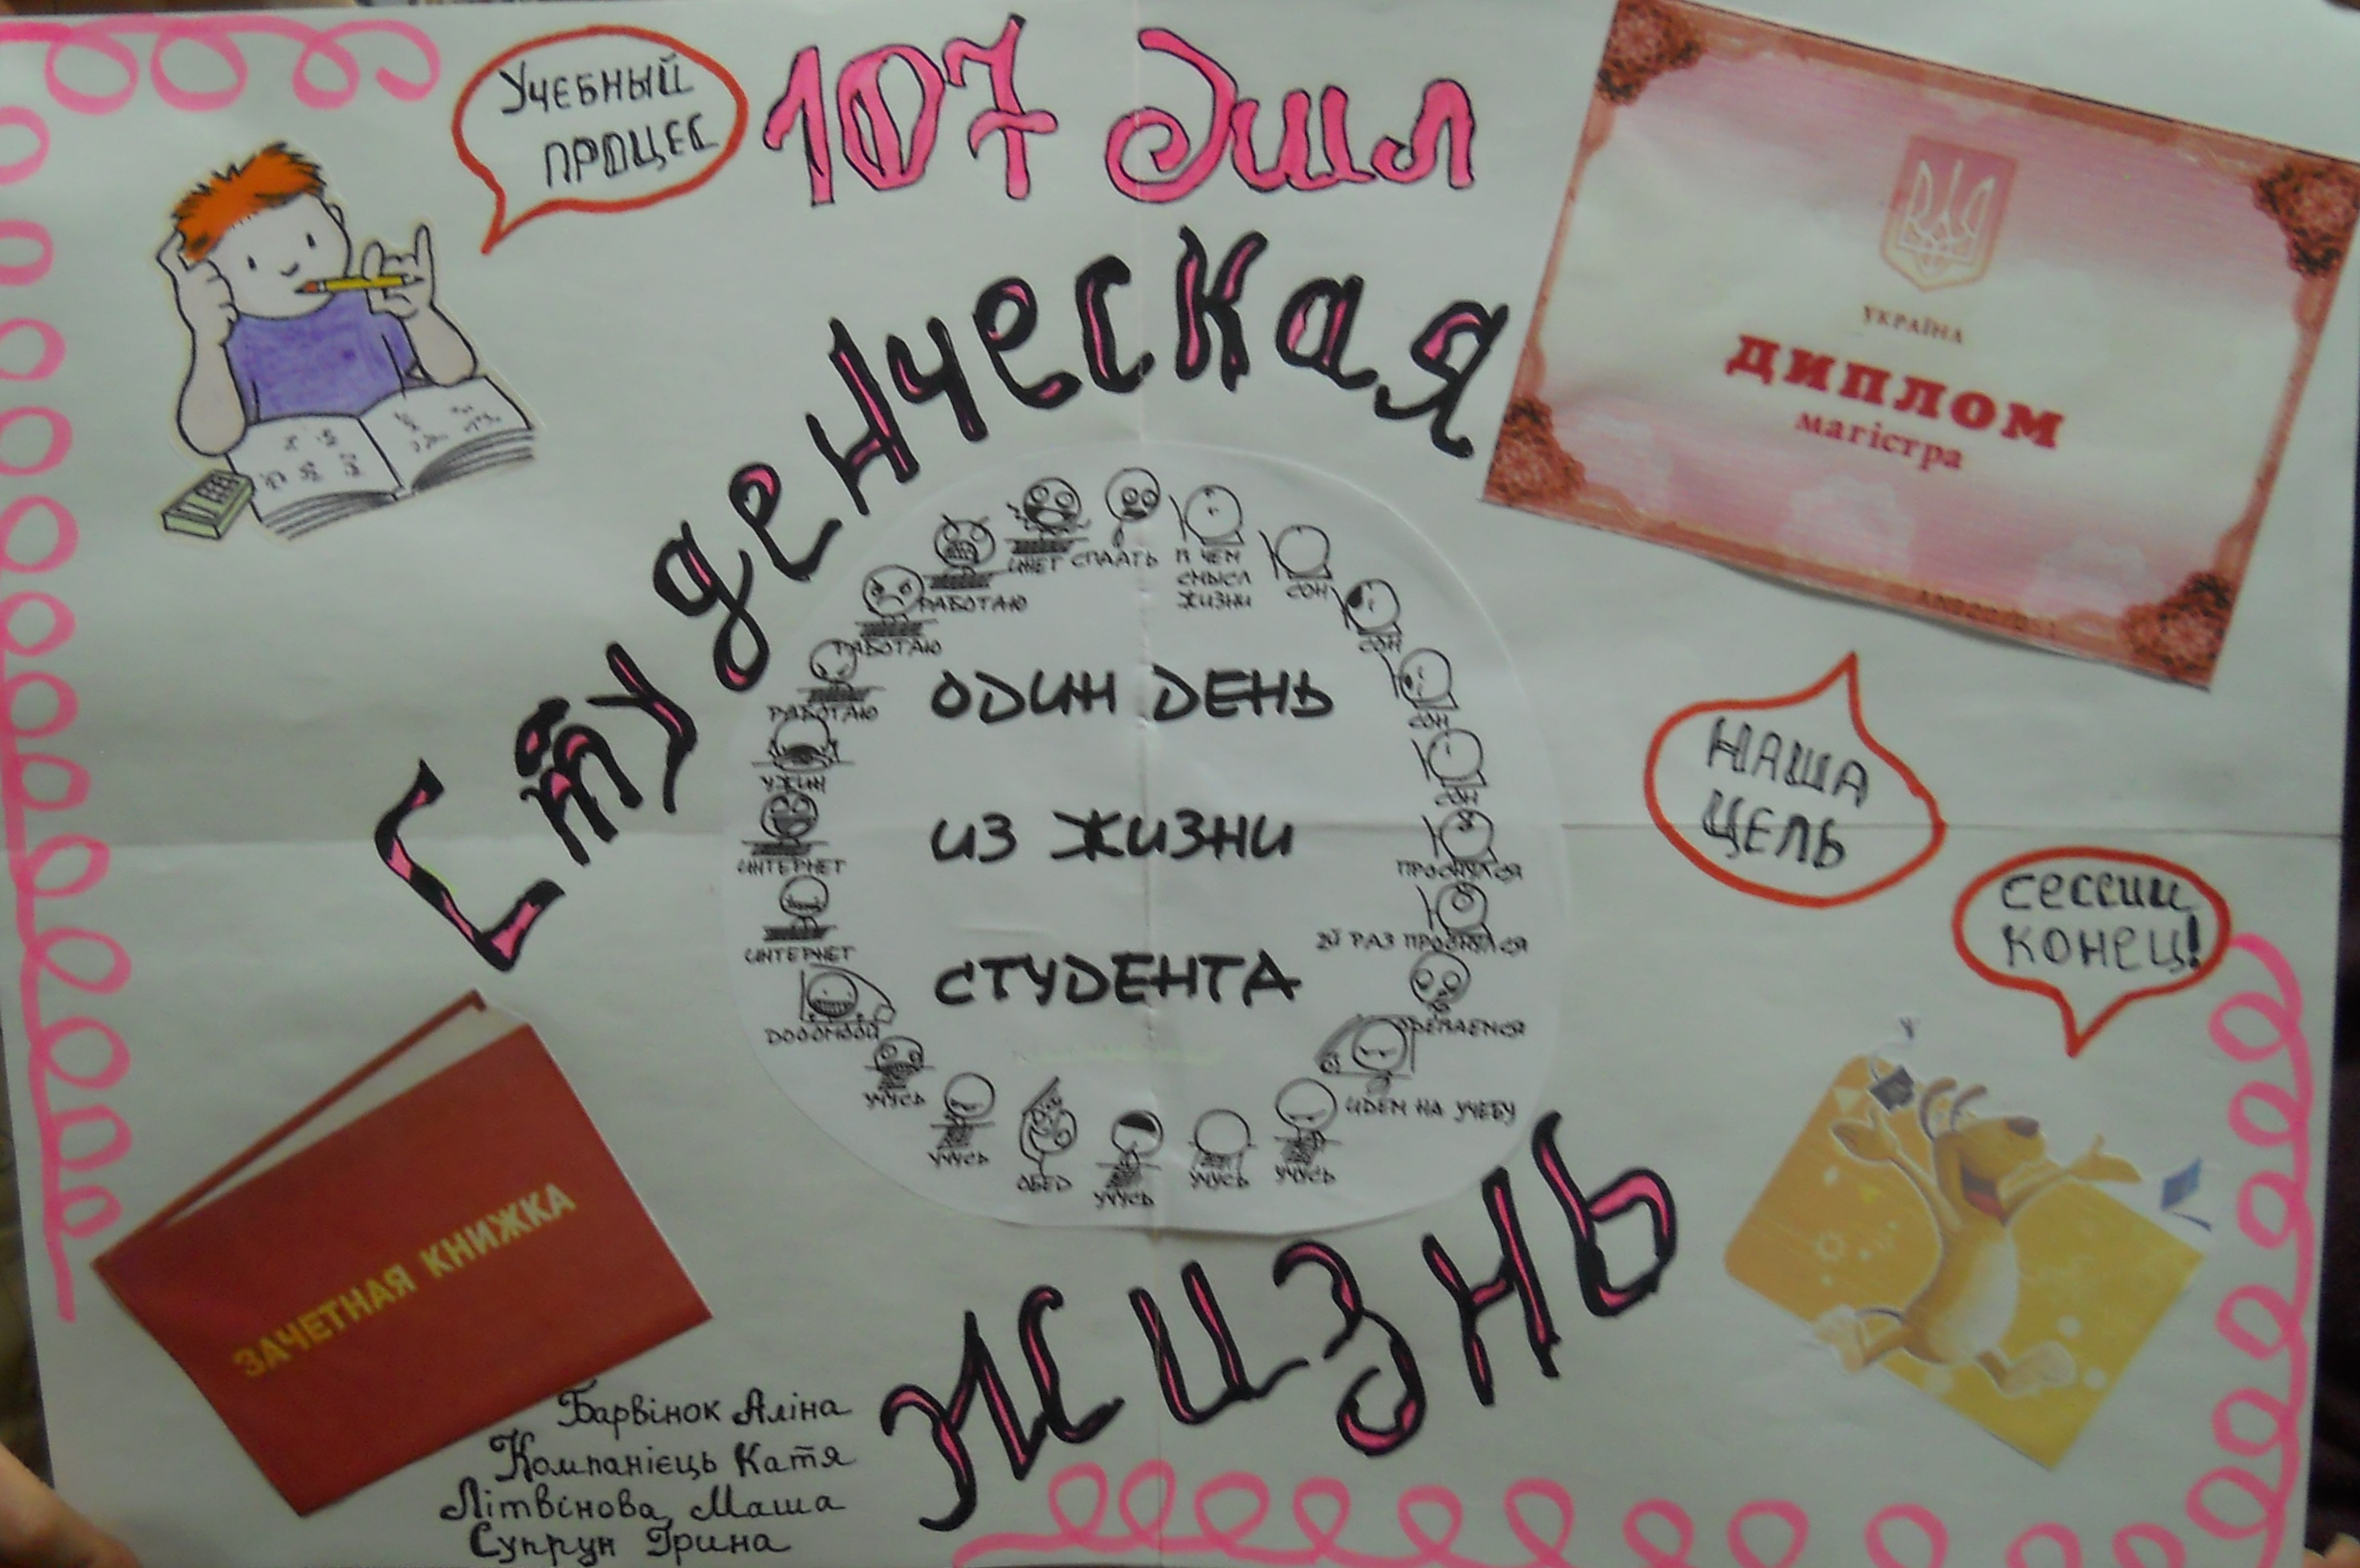 УЧЕБНЫЙ
ПРОЦЕС
107 Эшл
УКРАЇНА
ДИПЛОМ
магістра
Студенческая
НАША
ЦЕЛЬ
СЕССИИ
КОНЕЦ!
ОДИН ДЕНЬ
ИЗ ЖИЗНИ
СТУДЕНТА
СПААТЬ
П ЧЕМ
СМЫСЛ
ЖИЗНИ
СОН
СОН
СОН
СОН
ПРОСНУЛСЯ
2Й РАЗ ПРОСНУЛСЯ
ИДЕМ НА УЧЕБУ
УЧУСЬ
УЧУСЬ
УЧУСЬ
ОБЕД
УЧУСЬ
УЧУСЬ
DОООМООЙ
ИНТЕРНЕТ
ИНТЕРНЕТ
УЖИН
РАБОТАЮ
РАБОТАЮ
РАБОТАЮ
ЗАЧЕТНАЯ КНИЖКА
жизнь
Барвінок Аліна
Компанієць Катя
Літвінова Маша
Супрун Ірина